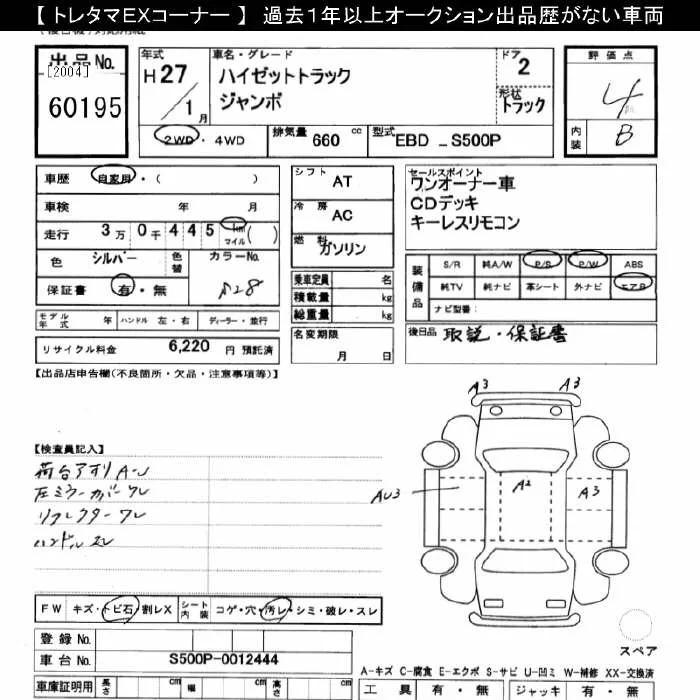 【 トレタマEXコーナー 】 過去1年以上オークション出品歴がない車両
出品No.
[2004]
60195
年式
H27/1月
車名・グレード
ハイゼットトラック
ジャンボ
ドア
2
形状
トラック
2WD・4WD
排気量 660 cc
型式 EBD _ S500P
評価点
4
内装 B
車歴 自家用・( )
車検 年 月
走行 3万0千445 km マイル ( )
色 シルバー 色替 カラーNo.
保証書 有・無 S28
モデル年式 年 ハンドル 左・右 ディーラー・並行
リサイクル料金 6,220 円 預託済
シフト AT
冷房 AC
燃料 ガソリン
乗車定員 名
積載量 kg
総重量 kg
名変期限
月 日
セールスポイント
ワンオーナー車
CDデッキ
キーレスリモコン
装備品
S/R 純A/W P/S P/W ABS
純TV 純ナビ 革シート 外ナビ エアB
ナビ型番:
後日品 取説・保証書
【出品店申告欄(不良箇所・欠品・注意事項等)】
【検査員記入】
荷台アオリA-U
左ミラーカバーワレ
リフレクターワレ
ハンドルスレ
A3 A3
AU3 A2 A3
スペア
FW キズ・トビ石・割レX
シート内装 コゲ・穴・汚レ・シミ・破レ・スレ
登録No.
車台No. S500P-0012444
車庫証明用 長さ cm 幅 cm 高さ cm
A-キズ C-腐食 E-エクボ S-サビ U-凹ミ W-補修 XX-交換済
工具 有・無 ジャッキ 有・無